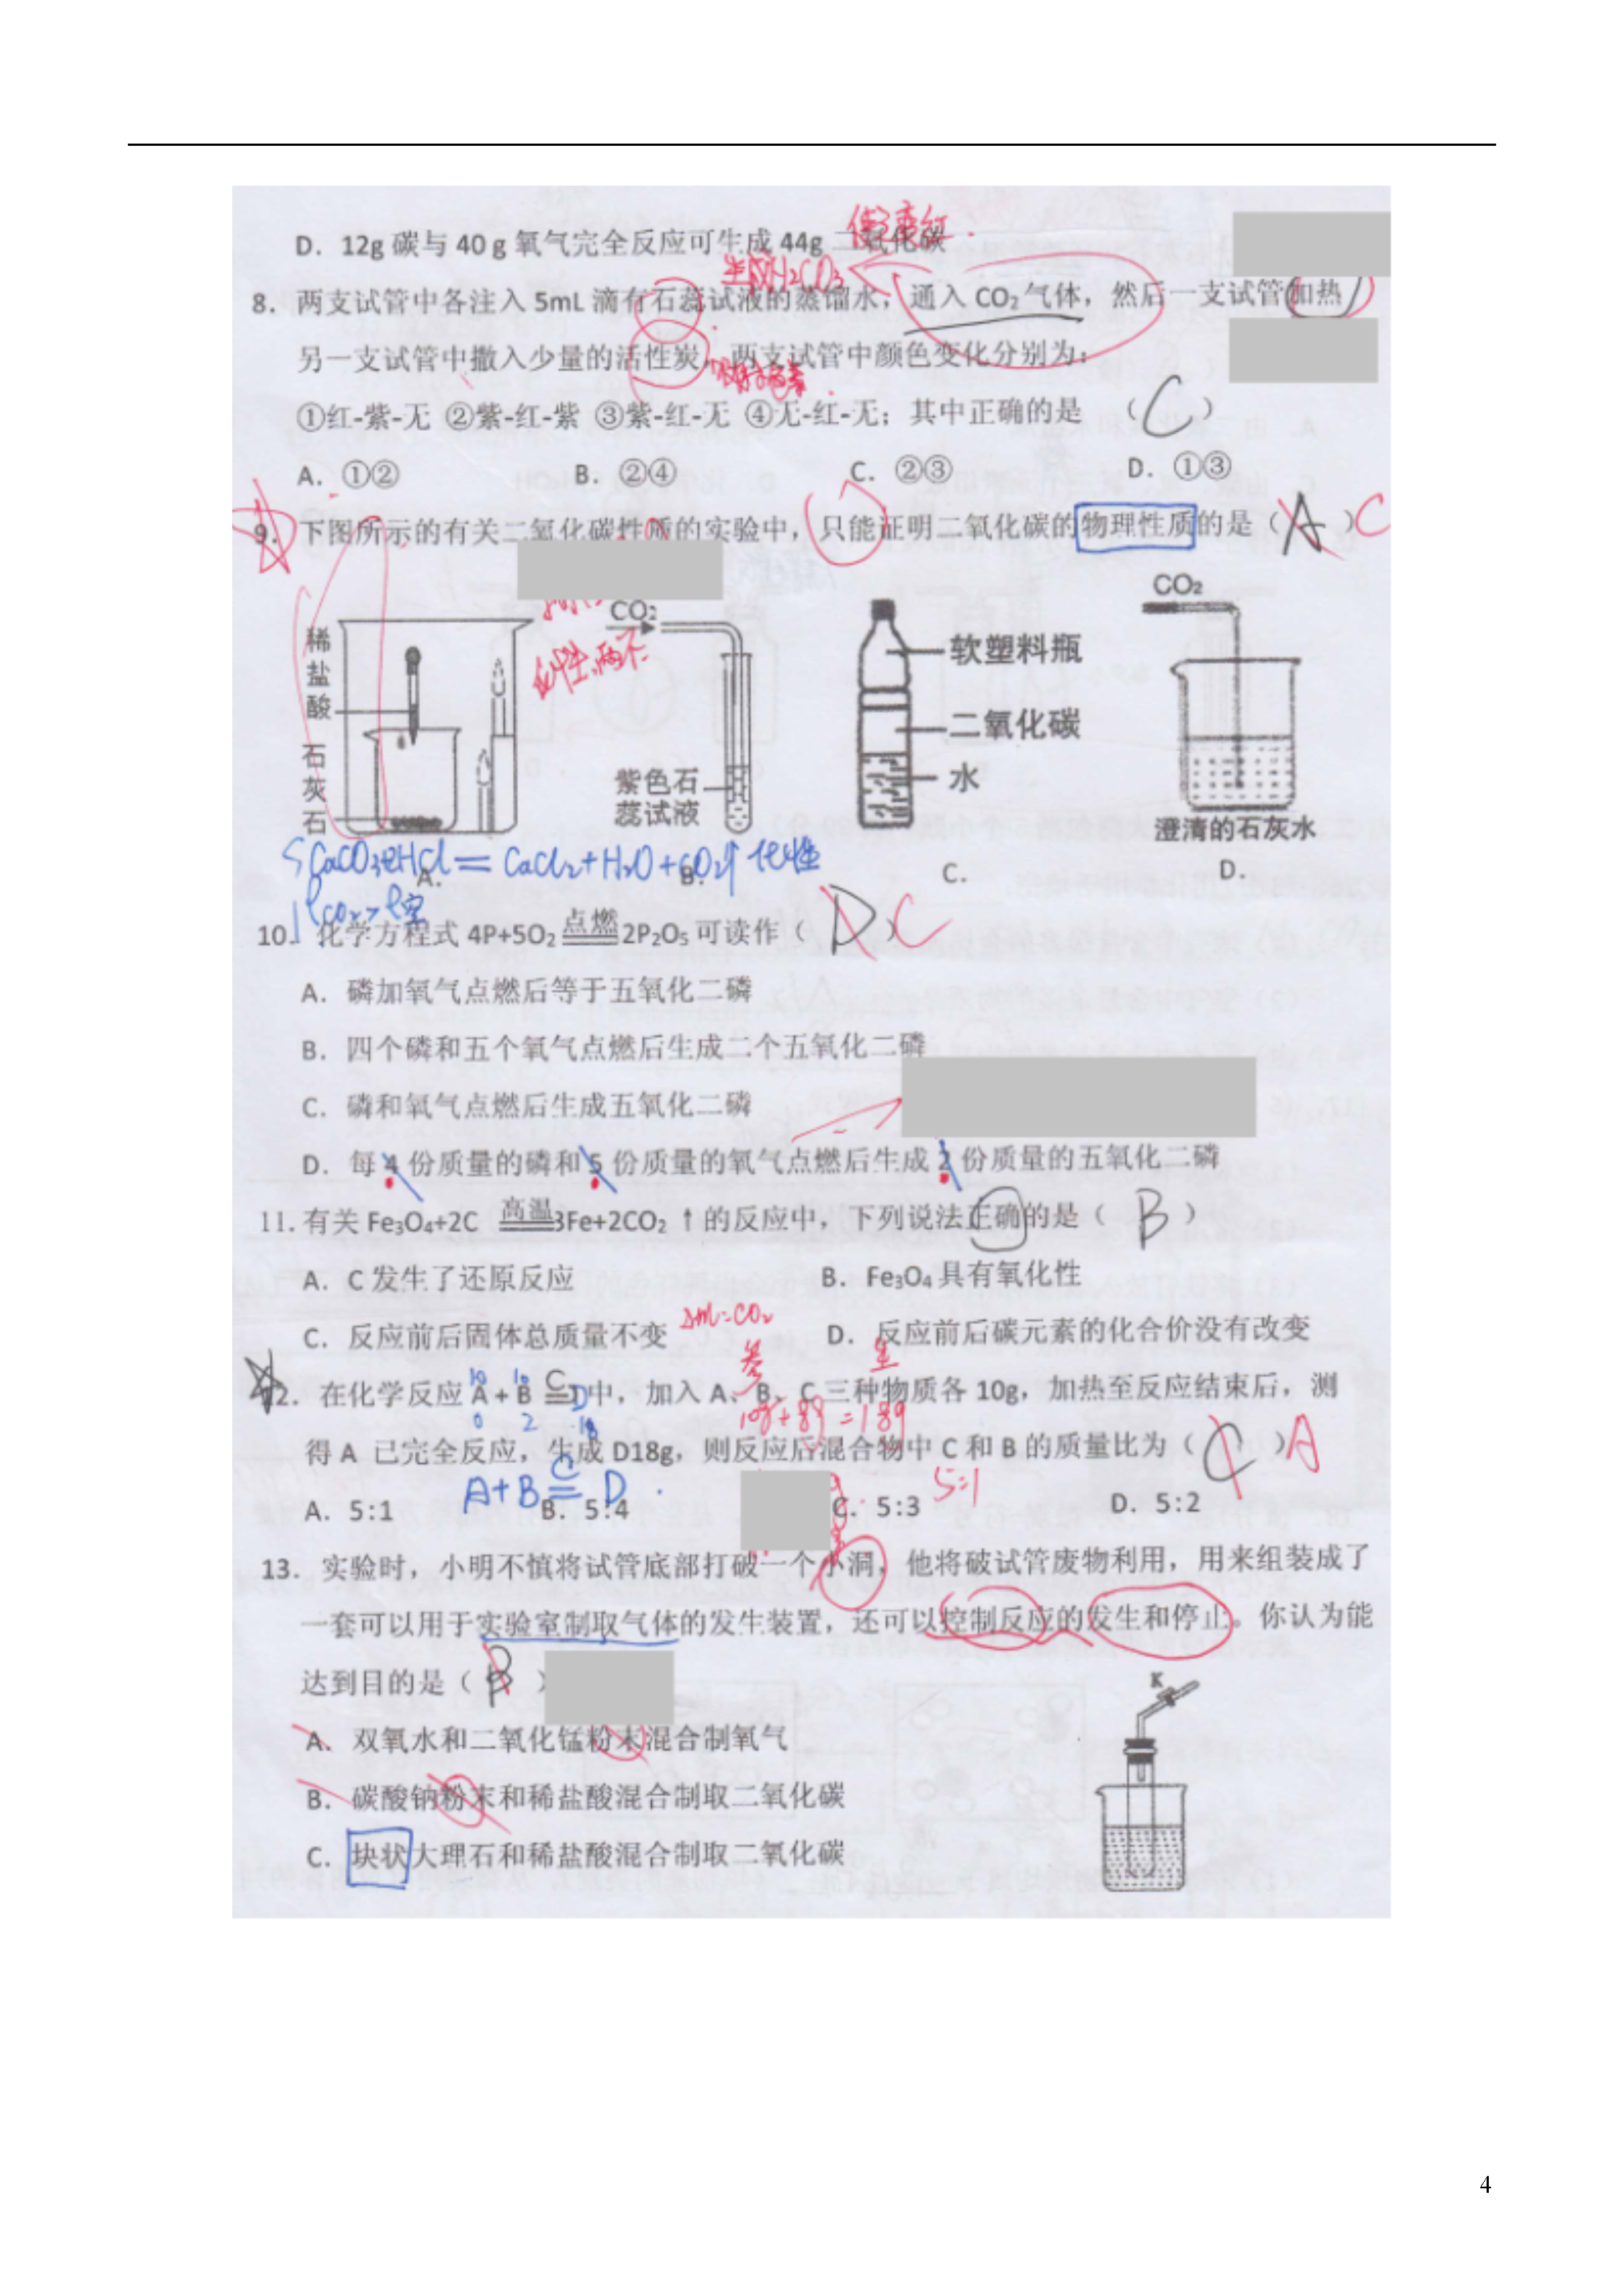 D. 12g 碳与 40 g 氧气完全反应可生成 44g 二氧化碳
使变红.
生成H₂CO₃
8. 两支试管中各注入 5mL 滴有石蕊试液的蒸馏水，通入 CO₂ 气体，然后一支试管加热
另一支试管中撒入少量的活性炭，两支试管中颜色变化分别为:
①红-紫-无 ②紫-红-紫 ③紫-红-无 ④无-红-无；其中正确的是 （C）
A. ①② B. ②④ C. ②③ D. ①③
9. 下图所示的有关二氧化碳性质的实验中，只能证明二氧化碳的物理性质的是（A）C
稀盐酸
石灰石
CO₂
紫色石
蕊试液
软塑料瓶
二氧化碳
水
CO₂
澄清的石灰水
A. B. C. D.
CaCO₃+2HCl=CaCl₂+H₂O+CO₂↑ 化性
ρCO₂>ρ空
10. 化学方程式 4P+5O₂ 点燃 2P₂O₅ 可读作（D）C
A. 磷加氧气点燃后等于五氧化二磷
B. 四个磷和五个氧气点燃后生成二个五氧化二磷
C. 磷和氧气点燃后生成五氧化二磷
D. 每 4 份质量的磷和 5 份质量的氧气点燃后生成 2 份质量的五氧化二磷
11. 有关 Fe₃O₄+2C 高温 3Fe+2CO₂ ↑ 的反应中，下列说法正确的是（ B ）
A. C 发生了还原反应 B. Fe₃O₄ 具有氧化性
C. 反应前后固体总质量不变 D. 反应前后碳元素的化合价没有改变
Δm=CO₂
参 生
10 10
12. 在化学反应 A + B C D 中，加入 A、B、C 三种物质各 10g，加热至反应结束后，测
0 2 18
10g+8g=18g
得 A 已完全反应，生成 D18g，则反应后混合物中 C 和 B 的质量比为（C）A
A+B C = D
A. 5:1 B. 5:4 C. 5:3 D. 5:2
5:1
13. 实验时，小明不慎将试管底部打破一个小洞，他将破试管废物利用，用来组装成了
一套可以用于实验室制取气体的发生装置，还可以控制反应的发生和停止。你认为能
达到目的是（B ）
K
A. 双氧水和二氧化锰粉末混合制氧气
B. 碳酸钠粉末和稀盐酸混合制取二氧化碳
C. 块状大理石和稀盐酸混合制取二氧化碳
4